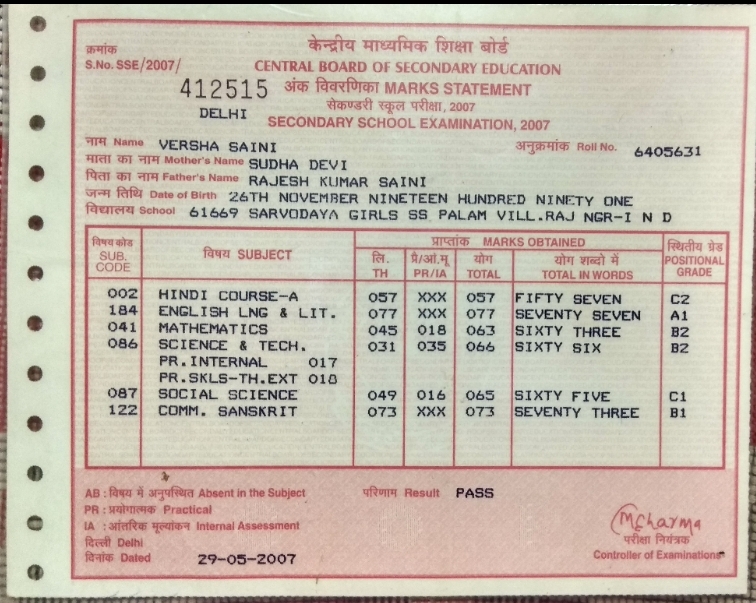 केन्द्रीय माध्यमिक शिक्षा बोर्ड
क्रमांक
S.No. SSE/2007/
CENTRAL BOARD OF SECONDARY EDUCATION
412515
अंक विवरणिका MARKS STATEMENT
सेकण्डरी स्कूल परीक्षा, 2007
DELHI
SECONDARY SCHOOL EXAMINATION, 2007
नाम Name VERSHA SAINI अनुक्रमांक Roll No. 6405631
माता का नाम Mother's Name SUDHA DEVI
पिता का नाम Father's Name RAJESH KUMAR SAINI
जन्म तिथि Date of Birth 26TH NOVEMBER NINETEEN HUNDRED NINETY ONE
विद्यालय School 61669 SARVODAYA GIRLS SS PALAM VILL.RAJ NGR-I N D
विषय कोड SUB. CODE
विषय SUBJECT
प्राप्तांक MARKS OBTAINED
लि. TH
प्रै/आं.मू PR/IA
योग TOTAL
योग शब्दो में TOTAL IN WORDS
स्थितीय ग्रेड POSITIONAL GRADE
002 HINDI COURSE-A 057 XXX 057 FIFTY SEVEN C2
184 ENGLISH LNG & LIT. 077 XXX 077 SEVENTY SEVEN A1
041 MATHEMATICS 045 018 063 SIXTY THREE B2
086 SCIENCE & TECH. 031 035 066 SIXTY SIX B2
PR.INTERNAL 017
PR.SKLS-TH.EXT 018
087 SOCIAL SCIENCE 049 016 065 SIXTY FIVE C1
122 COMM. SANSKRIT 073 XXX 073 SEVENTY THREE B1
AB : विषय में अनुपस्थित Absent in the Subject परिणाम Result PASS
PR : प्रयोगात्मक Practical
IA : आंतरिक मूल्यांकन Internal Assessment
दिल्ली Delhi
दिनांक Dated 29-05-2007
MCharma
परीक्षा नियंत्रक
Controller of Examinations